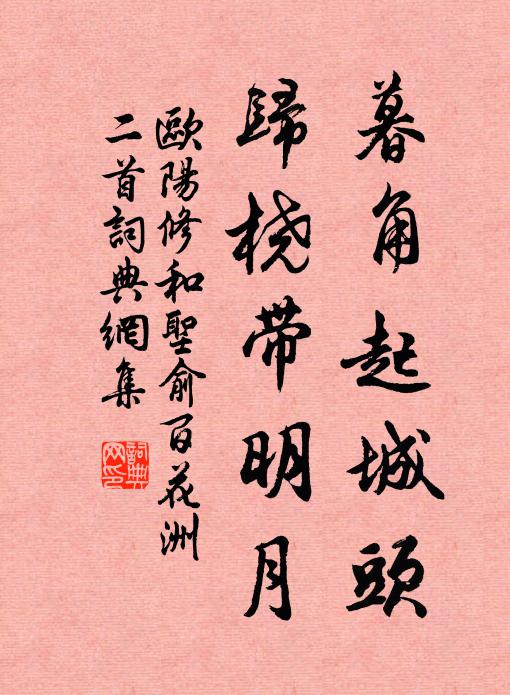 暮角起城頭
歸桡带明月
歐陽修和聖俞百花洲
二首詞典網集
詞典
网印